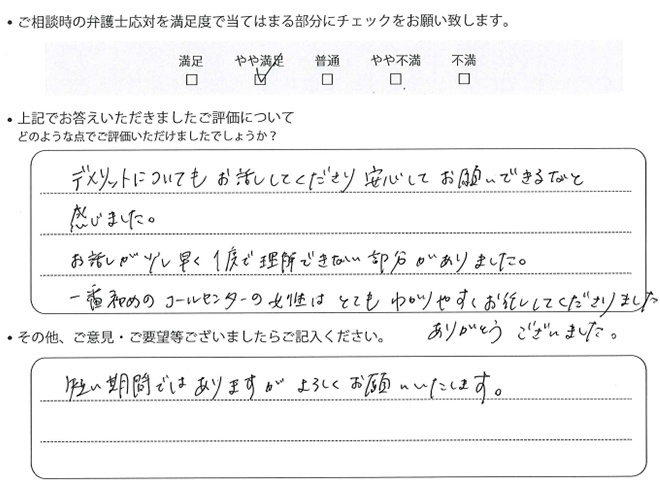 • ご相談時の弁護士応対を満足度で当てはまる部分にチェックをお願い致します。
満足 やや満足 普通 やや不満 不満
□ ☑ □ □ □
• 上記でお答えいただきましたご評価について
どのような点でご評価いただけましたでしょうか？
デメリットについてもお話ししてくださり安心してお願いできるなと
感じました。
お話しが少し早く1度で理解できない部分がありました。
一番初めのコールセンターの女性はとてもわかりやすくお話ししてくださりました
ありがとうございました。
• その他、ご意見・ご要望等ございましたらご記入ください。
短い期間ではありますがよろしくお願いいたします。